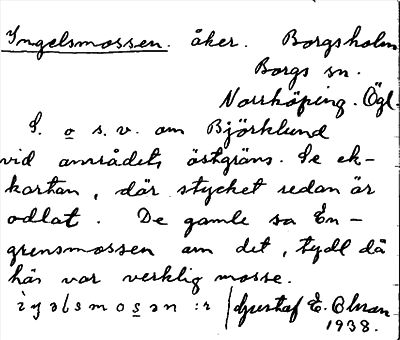 Ingelsmossen. åker. Borgsholm
Borgs sn.
Norrköping. Ögl.
S. o s.v. om Björklund
vid området, östgräns. Se ek-
kartan, där stycket redan är
odlat. De gamle sa En-
grensmossen om det, tydl då
här var verklig mosse.
Gustaf E. Olsson
1938.